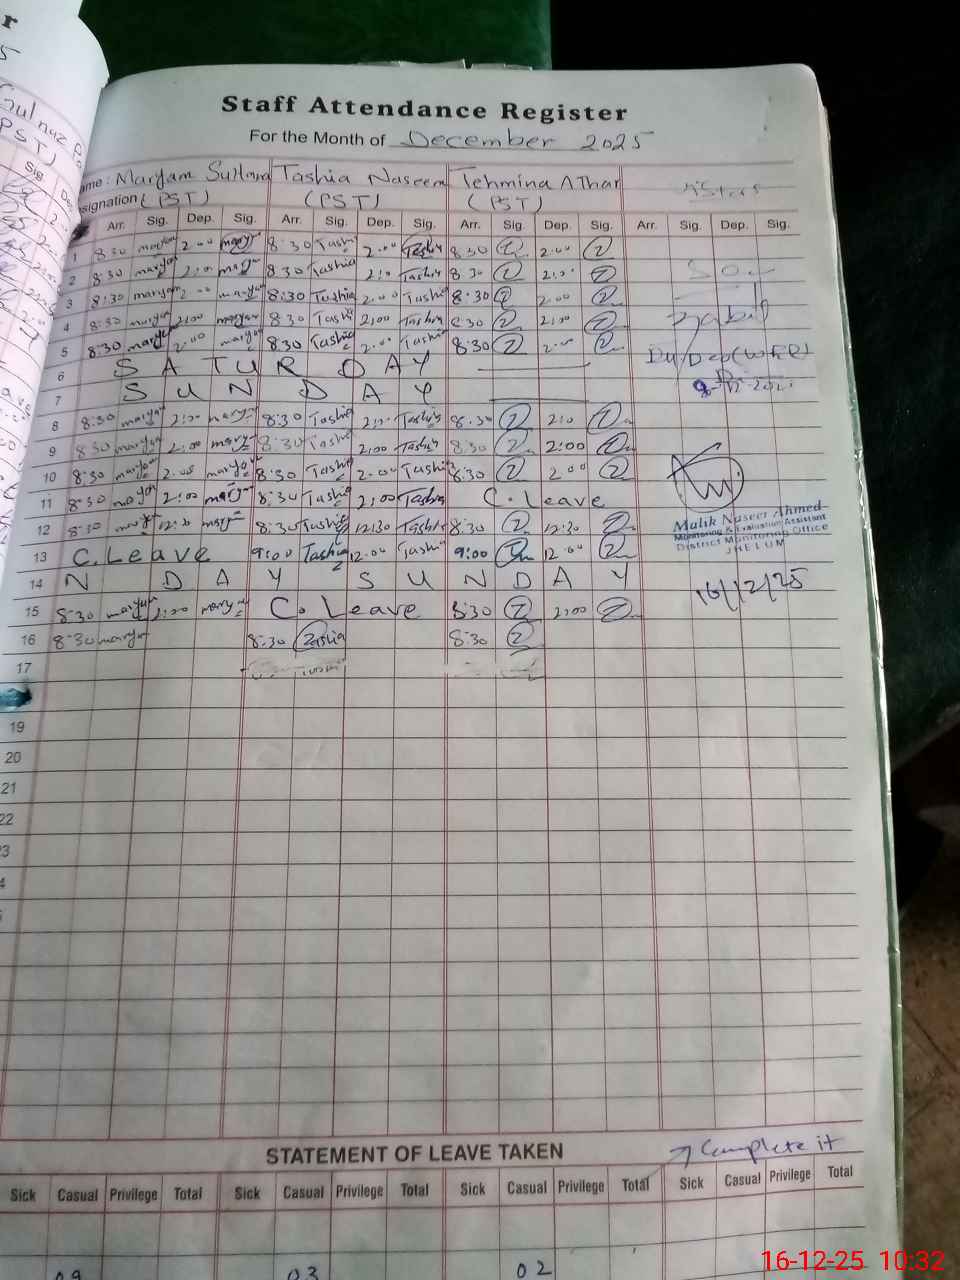 Staff Attendance Register
For the Month of December 2025
ame: Maryam Sultana Tashia Naseem Tehmina Athar
signation (PST) (PST) (PST)
Arr. Sig. Dep. Sig. Arr. Sig. Dep. Sig. Arr. Sig. Dep. Sig. Arr. Sig. Dep. Sig.
1 8:30 maryam 2:00 maryam 8:30 Tashia 2:00 Tashia 8:30 2:00
2 8:30 maryam 2:00 maryam 8:30 Tashia 2:00 Tashia 8:30 2:00
3 8:30 maryam 2:00 maryam 8:30 Tashia 2:00 Tashia 8:30 2:00
4 8:30 maryam 2:00 maryam 8:30 Tashia 2:00 Tashia 8:30 2:00
5 8:30 maryam 2:00 8:30 Tashia 2:00 Tashia 8:30 2:00
6 SATURDAY
7 SUNDAY
8 8:30 maryam 2:00 maryam 8:30 Tashia 2:00 Tashia 8:30 2:00
9 8:30 maryam 2:00 maryam 8:30 Tashia 2:00 Tashia 8:30 2:00
10 8:30 maryam 2:00 maryam 8:30 Tashia 2:00 Tashia 8:30 2:00
11 8:30 maryam 2:00 maryam 8:30 Tashia 2:00 Tashia C.Leave
12 8:30 12:30 maryam 8:30 Tashia 12:30 Tashia 8:30 12:30
13 C.Leave 9:00 Tashia 12:00 Tashia 9:00 12:00
14 N D A Y S U N D A Y
15 8:30 maryam 2:00 maryam C.Leave 8:30 2:00
16 8:30 maryam 8:30 Tashia 8:30
17
19
20
21
22
Malik Naseer Ahmed
Monitoring & Evaluation Assistant
District Monitoring Office
JHELUM
16/12/25
STATEMENT OF LEAVE TAKEN
Complete it
Sick Casual Privilege Total Sick Casual Privilege Total Sick Casual Privilege Total Sick Casual Privilege Total
03 02
16-12-25 10:32